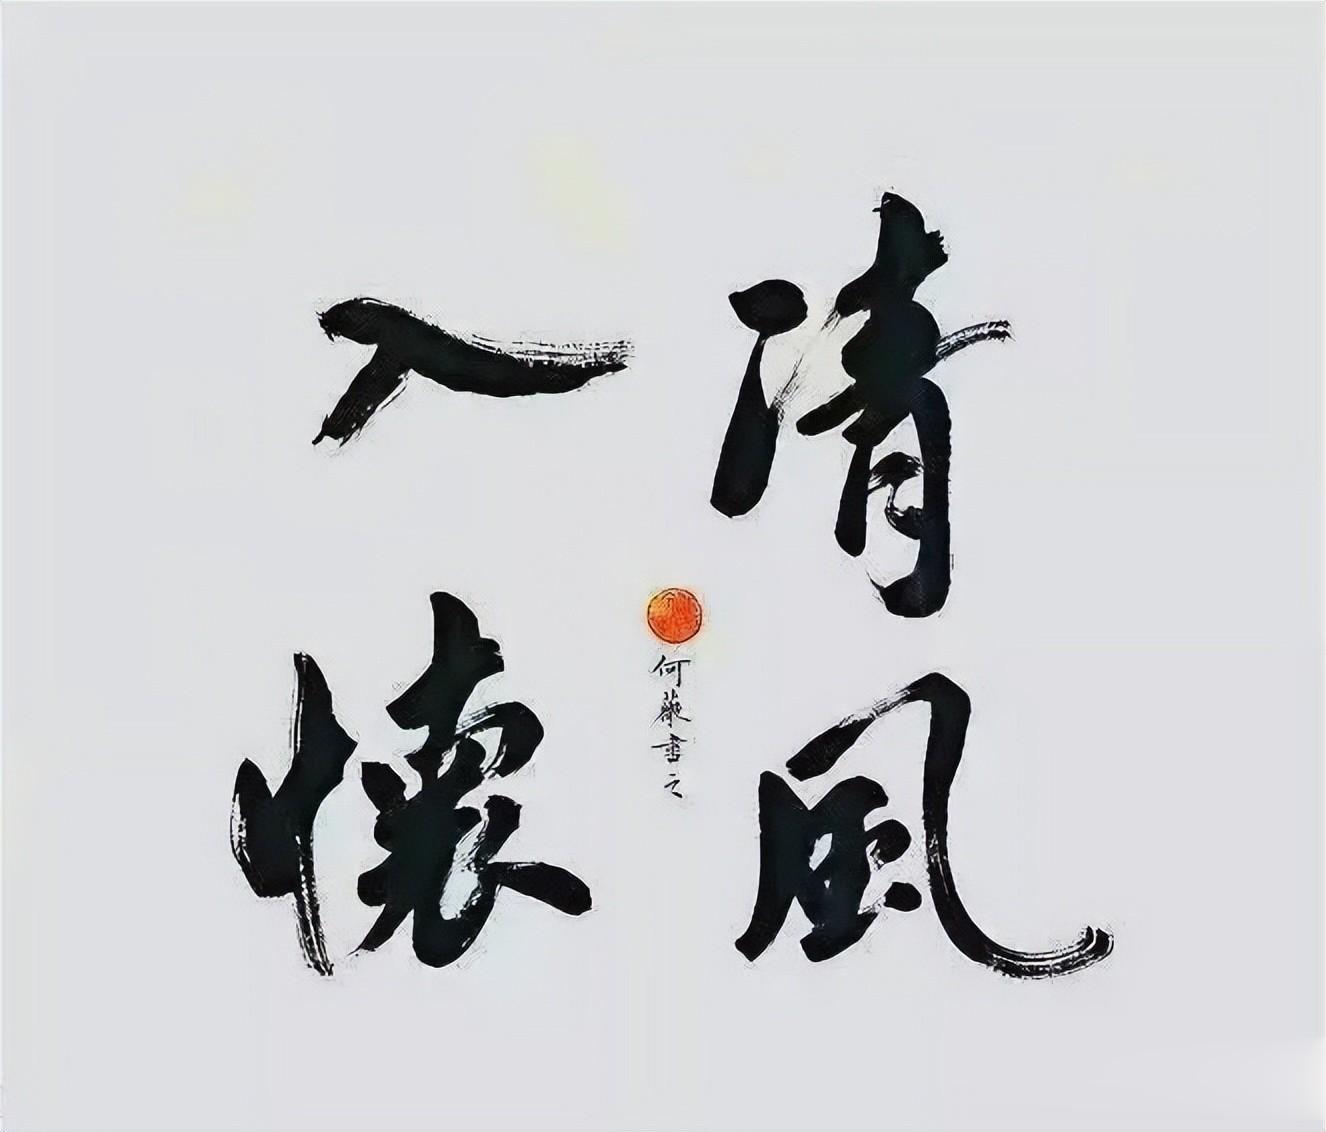 清風
入懷
何薇書之